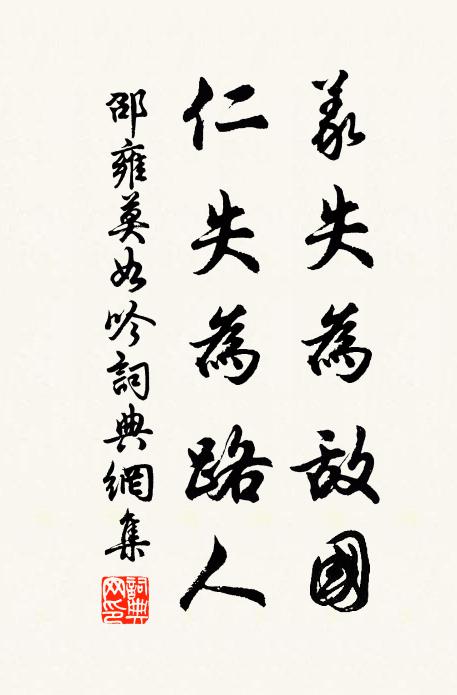 義失為敵國
仁失為路人
邵雍莫如吟詞典網集
詞典網印